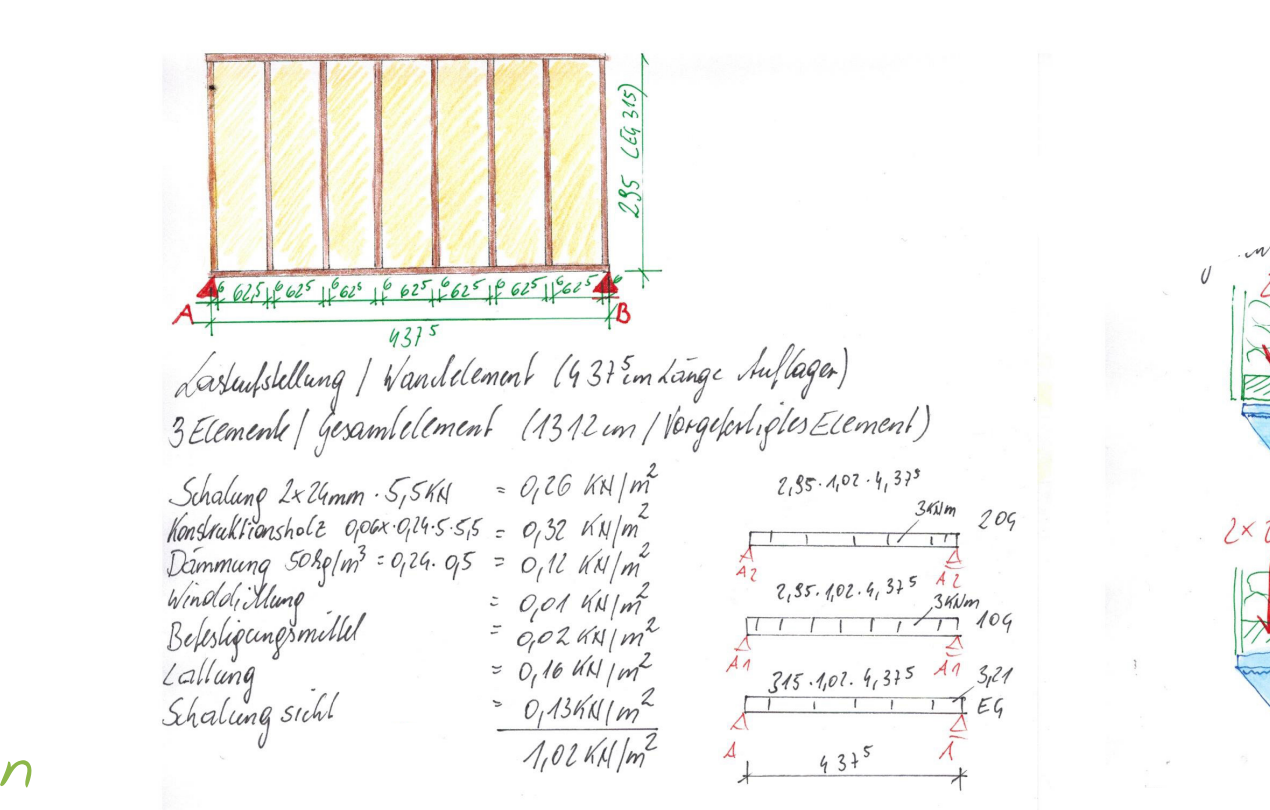 295 (EG 315)
6 62,5 6 62⁵ 6 62⁵ 6 62⁵ 6 62⁵ 6 62⁵ 6 62⁵ 6
A B
437⁵
Lastaufstellung / Wandelement (437⁵cm Länge Auflager)
3 Elemente / Gesamtelement (1312 cm / Vorgefertigtes Element)
Schalung 2x24mm · 5,5KN = 0,26 KN/m²
Konstruktionsholz 0,06x·0,24·5·5,5 = 0,32 KN/m²
Dämmung 50kg/m³ = 0,24·0,5 = 0,12 KN/m²
Winddichtung = 0,01 KN/m²
Befestigungsmittel = 0,02 KN/m²
Lattung = 0,16 KN/m²
Schalung sicht = 0,13KN/m²
1,02 KN/m²
2,95·1,02·4,37⁵
3KNm 2OG
A2 A2
2,95·1,02·4,37⁵
3KNm 1OG
A1 A1
315·1,02·4,37⁵ 3,21
EG
A
437⁵
2x
n